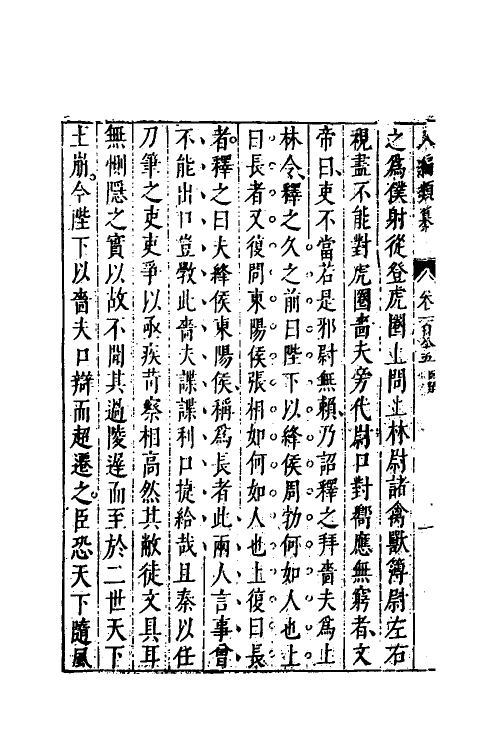 之爲僕射從登虎圈上問上林尉諸禽獸簿尉左右
視盡不能對虎圈嗇夫旁代尉口對嚮應無窮者文
帝曰吏不當若是邪尉無賴乃詔釋之拜嗇夫爲上
林令釋之久之前曰陛下以絳侯周勃何如人也上
曰長者又復問東陽侯張相如何如人也上復曰長
者釋之曰夫絳侯東陽侯稱爲長者此兩人言事曾
不能出口豈斆此嗇夫諜諜利口捷給哉且秦以任
刀筆之吏吏爭以亟疾苛察相高然其敝徒文具耳
無惻隱之實以故不聞其過陵遲而至於二世天下
土崩今陛下以嗇夫口辯而超遷之臣恐天下隨風